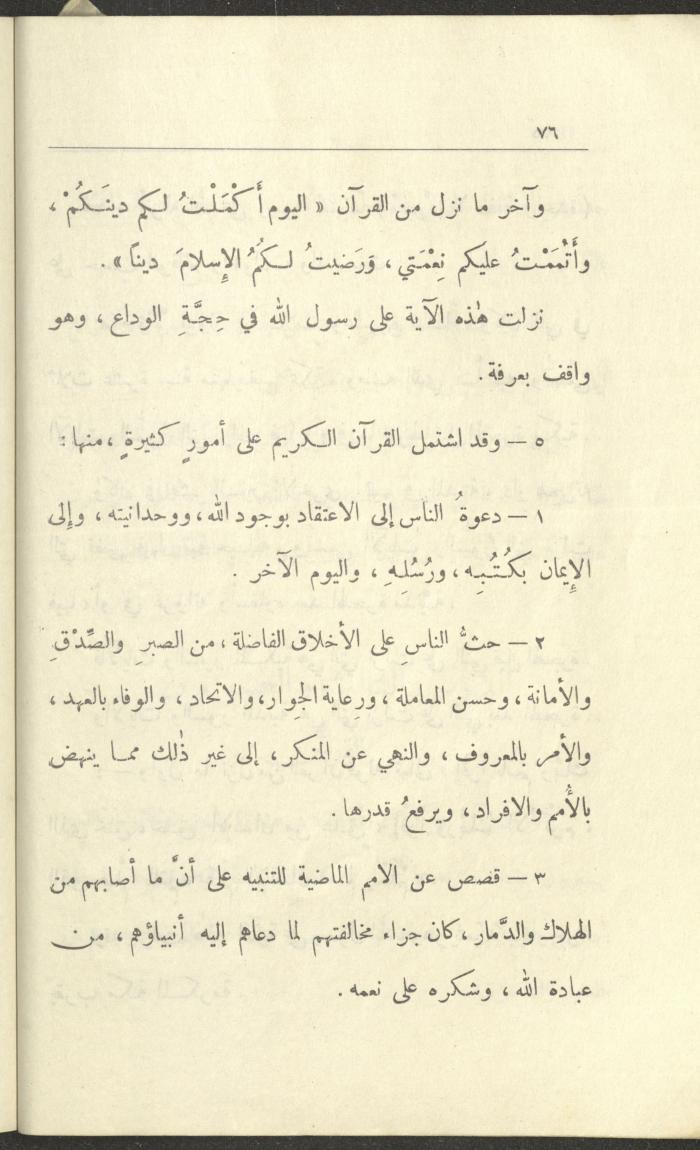 ٧٦
وآخر ما نزل من القرآن « اليوم أَكْمَلْتُ لكم دينَكُمْ ،
وأَتْمَمْتُ عليكم نِعْمَتي ، وَرَضيتُ لكُمُ الإِسلامَ ديناً » .
نزلت هٰذه الآية على رسول الله في حِجَّةِ الوداع ، وهو
واقف بعرفة .
٥ — وقد اشتمل القرآن الكريم على أمورٍ كثيرةٍ ، منها :
١ — دعوةُ الناس إلى الاعتقاد بوجود الله، ووحدانيته ، وإلى
الإيمان بكُتُبِه ، ورُسُلِهِ ، واليوم الآخر .
٢ — حثُّ الناسِ على الأخلاق الفاضلة ، من الصبرِ والصِّدْقِ
والأمانة ، وحسن المعاملة ، ورِعاية الجِوار، والاتحاد ، والوفاء بالعهد ،
والأمر بالمعروف ، والنهي عن المنكر ، إلى غير ذٰلك مما ينهض
بالأُمم والافراد ، ويرفعُ قدرها .
٣ — قصص عن الامم الماضية للتنبيه على أنَّ ما أصابهم من
الهلاك والدَّمار ، كان جزاء مخالفتهم لما دعاهم إليه أنبياؤهم ، من
عبادة الله ، وشكره على نعمه .